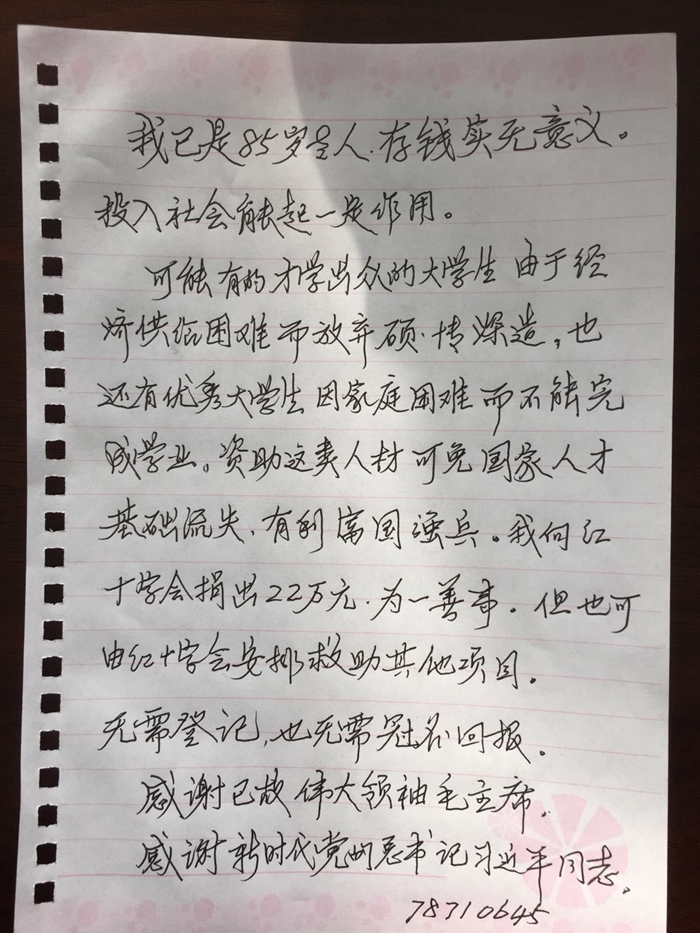 我已是85岁老人.存钱实无意义。
投入社会能起一定作用。
可能有的才学出众的大学生由于经
济供给困难而放弃硕.博深造,也
还有优秀大学生因家庭困难而不能完
成学业。资助这类人材可免国家人才
基础流失,有利富国强兵。我向红
十字会捐出22万元.为一善事.但也可
由红十字会安排救助其他项目.
无需登记,也无需冠名回报.
感谢已故伟大领袖毛主席.
感谢新时代党的总书记习近平同志.
78710645